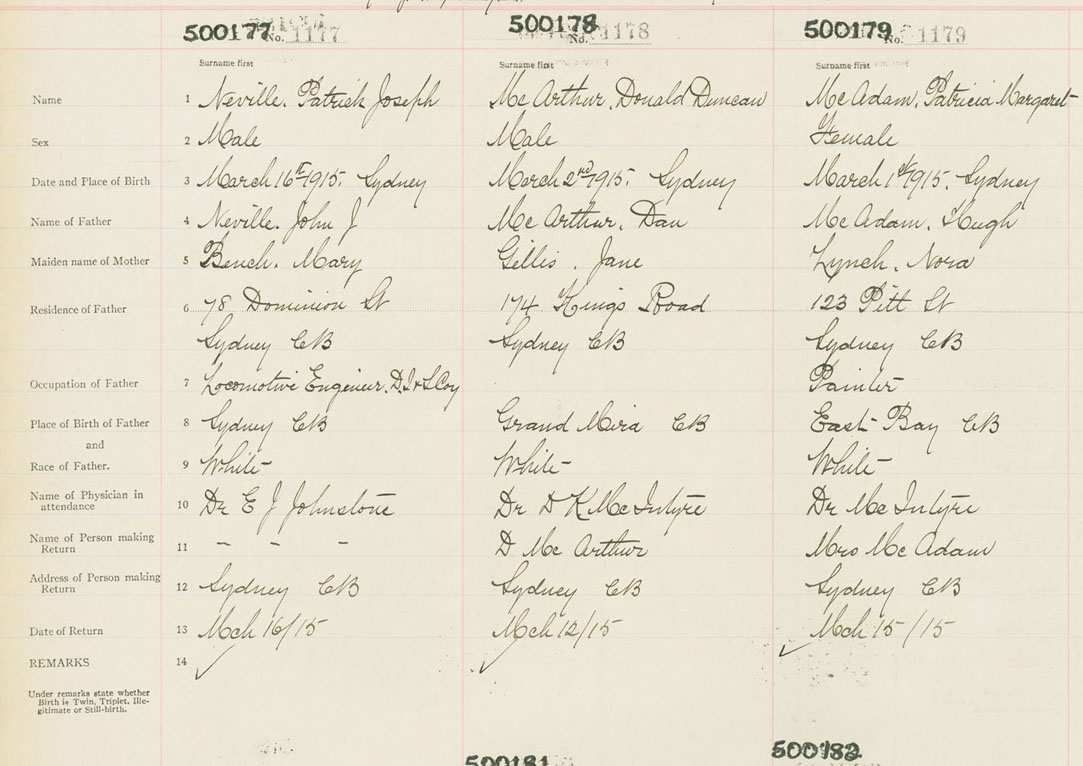 500177 No. 1177
500178 No. 1178
500179 No. 1179
Surname first
Surname first
Surname first
Name 1 Neville. Patrick Joseph
Mc Arthur, Donald Duncan
Mc Adam, Patricia Margaret
Sex 2 Male
Male
Female
Date and Place of Birth 3 March 16th 1915. Sydney
March 2nd 1915. Sydney
March 1st 1915. Sydney
Name of Father 4 Neville. John J
Mc Arthur, Dan
Mc Adam, Hugh
Maiden name of Mother 5 Bench. Mary
Gillis. Jane
Lynch. Nora
Residence of Father 6 78 Dominion St
174 Kings Road
123 Pitt St
Sydney CB
Sydney CB
Sydney CB
Occupation of Father 7 Locomotive Engineer. D.I & S Coy
Painter
Place of Birth of Father 8 Sydney CB
Grand Mira CB
East Bay CB
and
Race of Father. 9 White
White
White
Name of Physician in
attendance 10 Dr E J Johnstone
Dr D K McIntyre
Dr McIntyre
Name of Person making
Return 11 - - -
D Mc Arthur
Mrs Mc Adam
Address of Person making
Return 12 Sydney CB
Sydney CB
Sydney CB
Date of Return 13 Mch 16/15
Mch 12/15
Mch 15/15
REMARKS 14
Under remarks state whether
Birth is Twin, Triplet, Ille-
gitimate or Still-birth.
500181